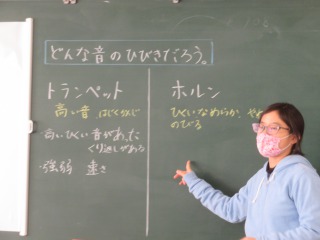 どんな音のひびきだろう。
トランペット
高い音 はじくかんじ
高いひくい音があった
くり返しがある
・強弱 速さ
ホルン
ひくい なめらか、
のびる